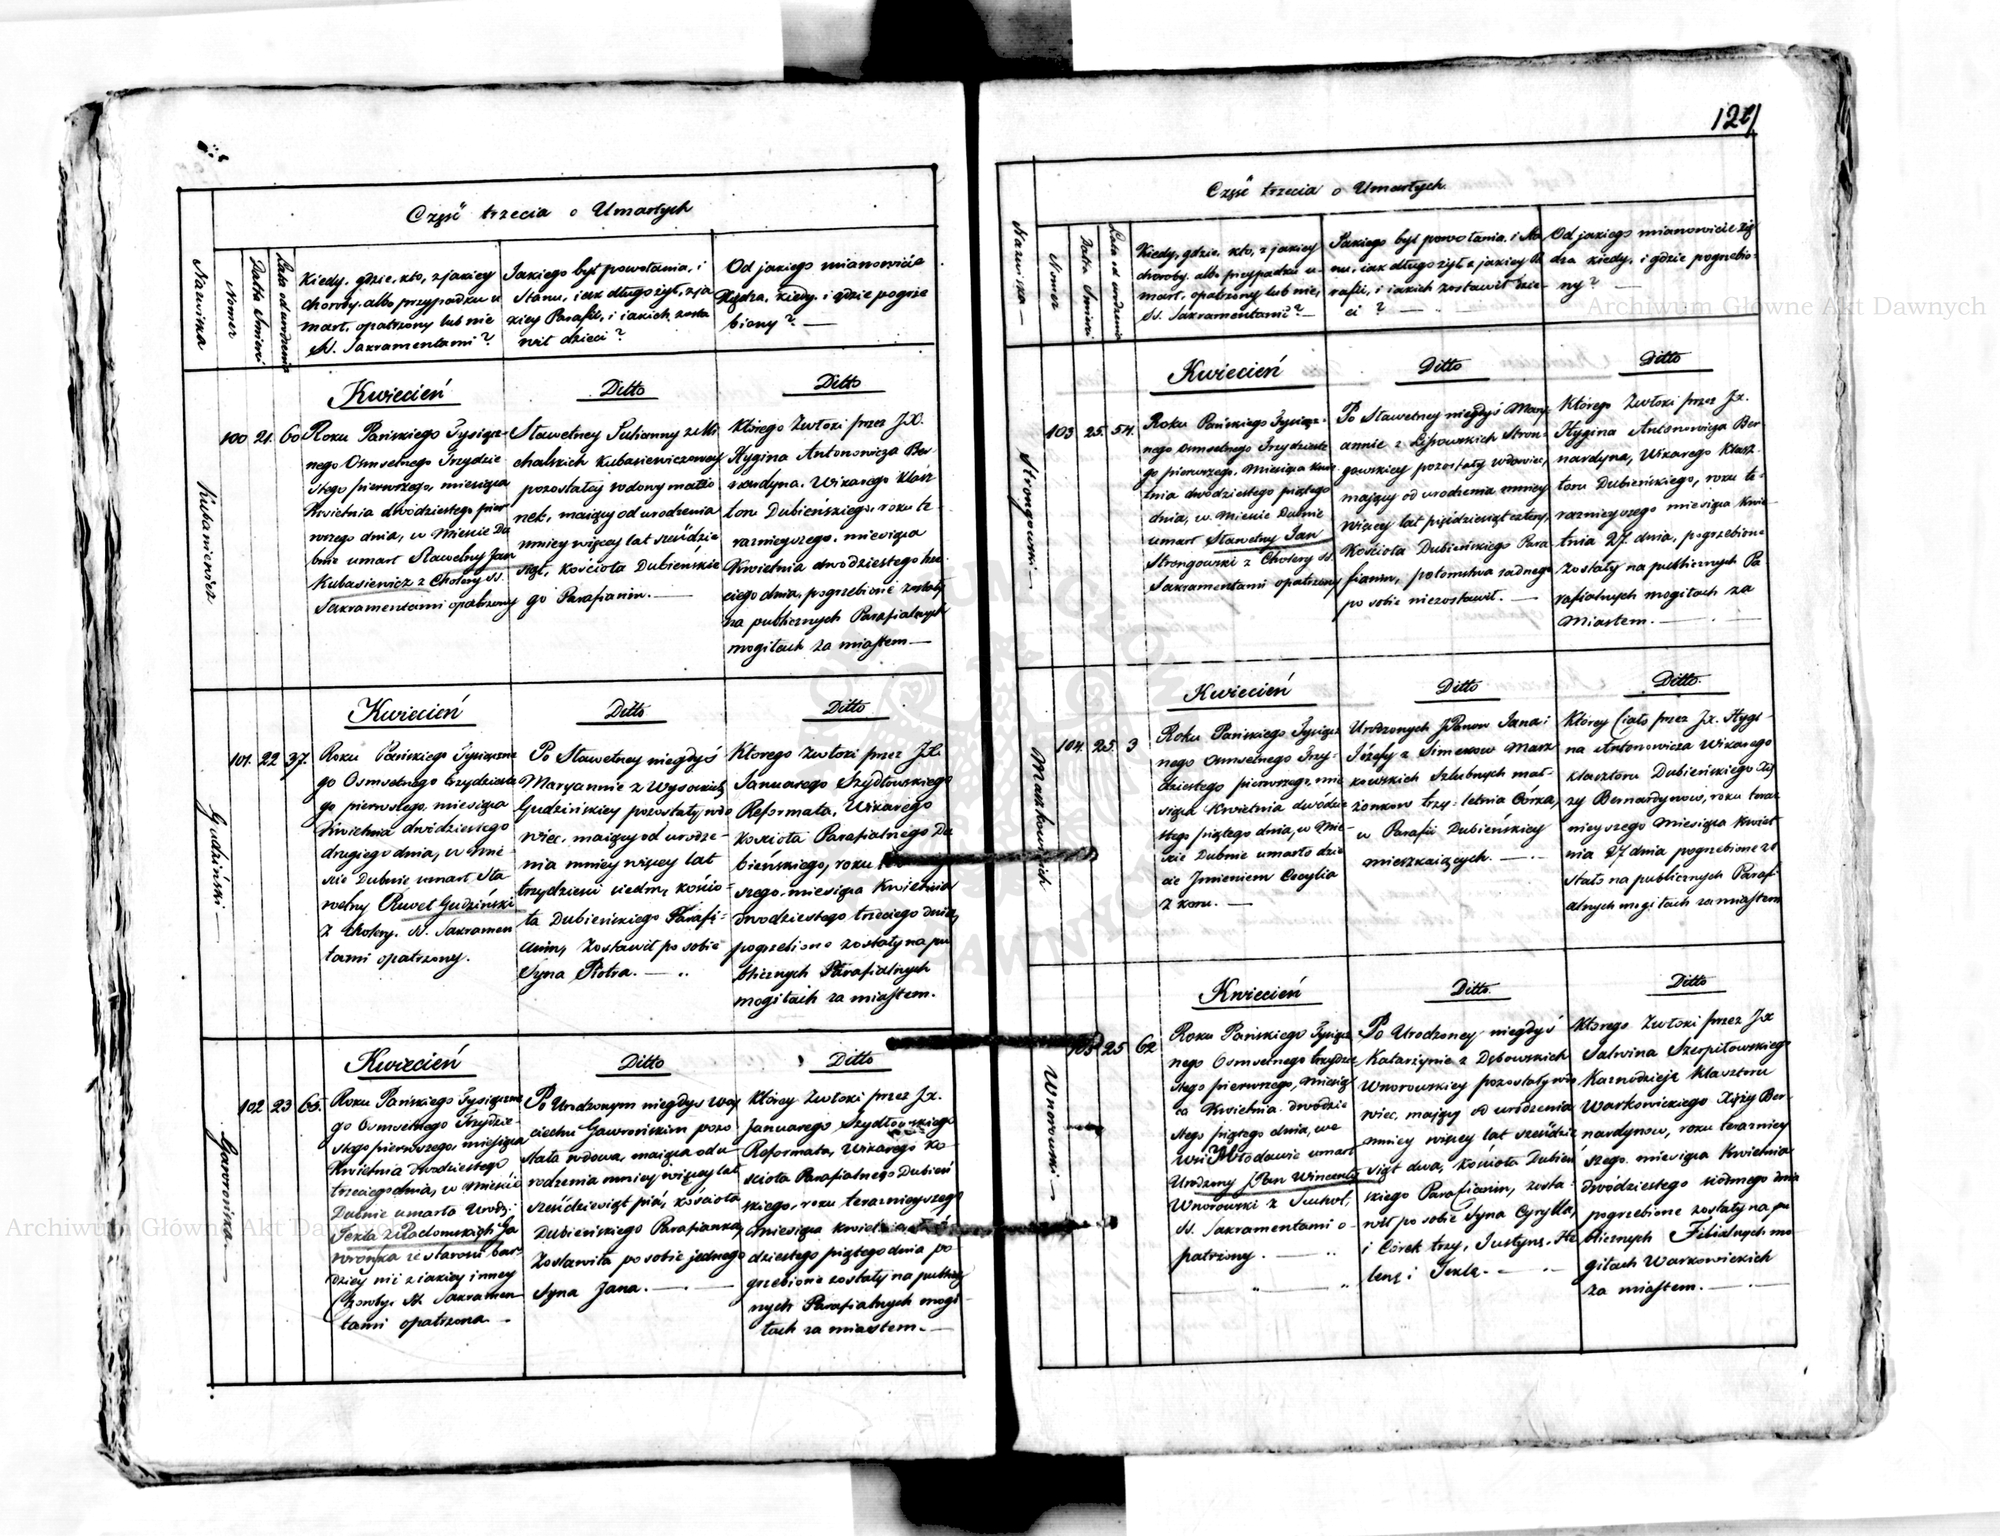 Część trzecia o Umarłych
Nazwiska
Nomer
Datta Smierci
Lata od urodzenia
Kiedy, gdzie, kto, z jakiey
choroby, albo przypadku u
mart, opatrzony lub nie
SS. Sakramentami?
Jakiego był powołania, i
Stanu, iak długo żył, z ja
kiey Parafii, i iakich zosta
wił dzieci?
Od jakiego mianowicie
Xiędza, kiedy, i gdzie pogrze
biony? —
Kubasiewicz
100 21. 60
Kwiecień
Roku Pańskiego Tysiącz-
nego Osmsetnego Trzydzie
stego pierwszego, miesiąca
Kwietnia dwódziestego pier
wszego dnia, w Mieście Du
bnie umarł Sławetny Jan
Kubasiewicz z Cholery SS.
Sakramentami opatrzony
Ditto
Sławetney Julianny z Mi
chalskich Kubasiewiczowey
pozostałey wdowy małżo
nek, maiący od urodzenia
mniey więcey lat sześdzie
siąt, Kościoła Dubieńskie
go Parafianin. —
Ditto
Którego Zwłoki przez JX.
Hygina Antonowicza Ber
nardyna, Wikarego Klasz
toru Dubieńskiego, roku te
raznieyszego, miesiąca
Kwietnia dwodziestego trze
ciego dnia, pogrzebione zostały
na publicznych Parafialnych
mogiłach za miastem —
Gudziński
101. 22 37.
Kwiecień
Roku Pańskiego Tysiączne
go Osmsetnego trzydziesto
go pierwszego, miesiąca
Kwietnia dwódziestego
drugiego dnia, w Mie
ście Dubnie umarł Sła
wetny Paweł Gudziński
z Cholery, SS. Sakramen
tami opatrzony.
Ditto
Po Sławetney niegdyś
Maryannie z Wysockich
Gudzińskiey pozostały wdo
wiec, maiący od urodze-
nia mniey więcey lat
trzydzieści siedm, kościo-
ła Dubieńskiego Parafi-
anin, Zostawił po sobie
Syna Piotra. —
Ditto
Ktorego Zwłoki przez JX.
Januarego Szydłowskiego
Reformata, Wikarego
kościoła Parafialnego Du
bieńskiego, roku
szego, miesiąca Kwietnia
dwodziestego trzeciego dnia,
pogrzebione zostały na pu
blicznych Parafialnych
mogiłach za miastem.
Gawrońska
102 23 65.
Kwiecień
Roku Pańskiego Tysiączne
go Osmsetnego Trzydzie
stego pierwszego, miesiąca
Kwietnia dwodziestego
trzeciego dnia, w Mieście
Dubnie umarła Urodz:
Tekla z Radomskich Ga
wrońska ze starości bar
dziey niż z iakiey inney
Choroby, SS. Sakramen
tami opatrzona —
Ditto
Po Urodzonym niegdyś Woy
ciechu Gawrońskim pozo
stała wdowa, maiąca od u
rodzenia mniey więcey lat
sześćdziesiąt pięć, kościoła
Dubieńskiego Parafianka,
Zostawiła po sobie jednego
Syna Jana. —
Ditto
Którey Zwłoki przez JX.
Januarego Szydłowskiego
Reformata, Wikarego ko-
ścioła Parafialnego Dubień
skiego, roku teraznieyszego
miesiąca Kwietnia
dziestego piątego dnia po
grzebione zostały na publicz
nych Parafialnych mogi-
łach za miastem. —
Część trzecia o Umarłych.
Nazwiska —
Nomer
Datta Smierci
Lata od urodzenia
Kiedy, gdzie, kto, z jakiey
choroby, albo przypadku u-
mart, opatrzony lub nie,
SS. Sakramentami? —
Jakiego był powołania, i Sta
nu, iak długo żył, z jakiey Pa
rafii, i iakich zostawił dzie-
ci? —
Od jakiego mianowicie Xię
dza, kiedy, i gdzie pogrzebio-
ny? —
Strongowski —
103 25. 54.
Kwiecień
Roku Pańskiego Tysiącz-
nego Osmsetnego Trzydzieste
go pierwszego, Miesiąca Kwie
tnia dwódziestego piątego
dnia, w Mieście Dubnie
umarł Sławetny Jan
Strongowski z Cholery SS.
Sakramentami opatrzony
Ditto
Po Sławetney niegdyś Mary-
annie z Lipowskich Stron-
gowskiey pozostały wdowiec,
mający od urodzenia mniey
więcey lat pięćdziesiąt cztery,
Kościoła Dubieńskiego Para
fianin, potomstwa żadnego
po sobie niezostawił. —
Ditto
Którego Zwłoki przez JX.
Hygina Antonowicza Ber
nardyna, Wikarego Klasz
toru Dubieńskiego, roku te-
raznieyszego miesiąca Kwie-
tnia 27. dnia, pogrzebione
zostały na publicznych Pa
rafialnych mogiłach za
Miastem. —
Maszkowskich
104. 25. 3
Kwiecień
Roku Pańskiego Tysiącz
nego Osmsetnego Trzy-
dziestego pierwszego, mie
siąca Kwietnia dwódzie
stego piątego dnia, w Mie-
ście Dubnie umarło dzie
cie Jmieniem Cecylia
z koru. —
Ditto
Urodzonych JPanow Jana i
Józefy z Simenow Masz
kowskich Szlubnych mał-
żonkow trzy-letnia Córka,
w Parafii Dubieńskiey
mieszkaiących. —
Ditto
Którey Ciało przez JX. Hygi-
na Antonowicza Wikarego
klasztoru Dubieńskiego Xię
ży Bernardynow, roku teraz
nieyszego Miesiąca Kwiet
nia 27 dnia pogrzebione zo
stało na publicznych Parafi
alnych mogiłach za miastem
Wnorowski —
105 25 62
Kwiecień
Roku Pańskiego Tysiącz
nego Osmsetnego trzydzie
stego pierwszego, Miesią
ca Kwietnia dwodzie
stego piątego dnia, we
Wsi Włodawie umarł
Urodzony JPan Wincenty
Wnorowski z Suchot,
SS. Sakramentami o-
patrzony. —
Ditto.
Po Urodzoney niegdyś
Katarzynie z Dębowskich
Wnorowskiey pozostały wdo
wiec, mający od urodzenia
mniey więcey lat sześdzie
siąt dwa, Kościoła Dubień
skiego Parafianin, zosta-
wił po sobie Syna Cyrylla,
i Córek trzy, Justynę, He
lenę i Teklę. —
Ditto
Którego Zwłoki przez JX
Salwina Szerpiłowskiego
Kaznodzieję Klasztoru
Warkowickiego Xięży Ber-
nardynow, roku terazniey
szego, miesiąca Kwietnia
dwódziestego siódmego dnia
pogrzebione zostały na pu
blicznych Filialnych mo
giłach Warkowickich
za miastem. —
Archiwum Główne Akt Dawnych
Archiwum Główne Akt Dawnych